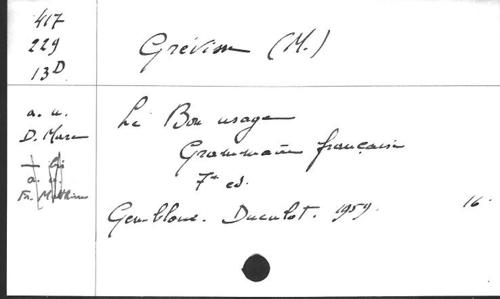 417
229
13D
Grévisse (M.)
a. u.
D. Marc
Le Bon usage
Grammaire française
7e ed.
Gembloux. Duculot. 1959. 16